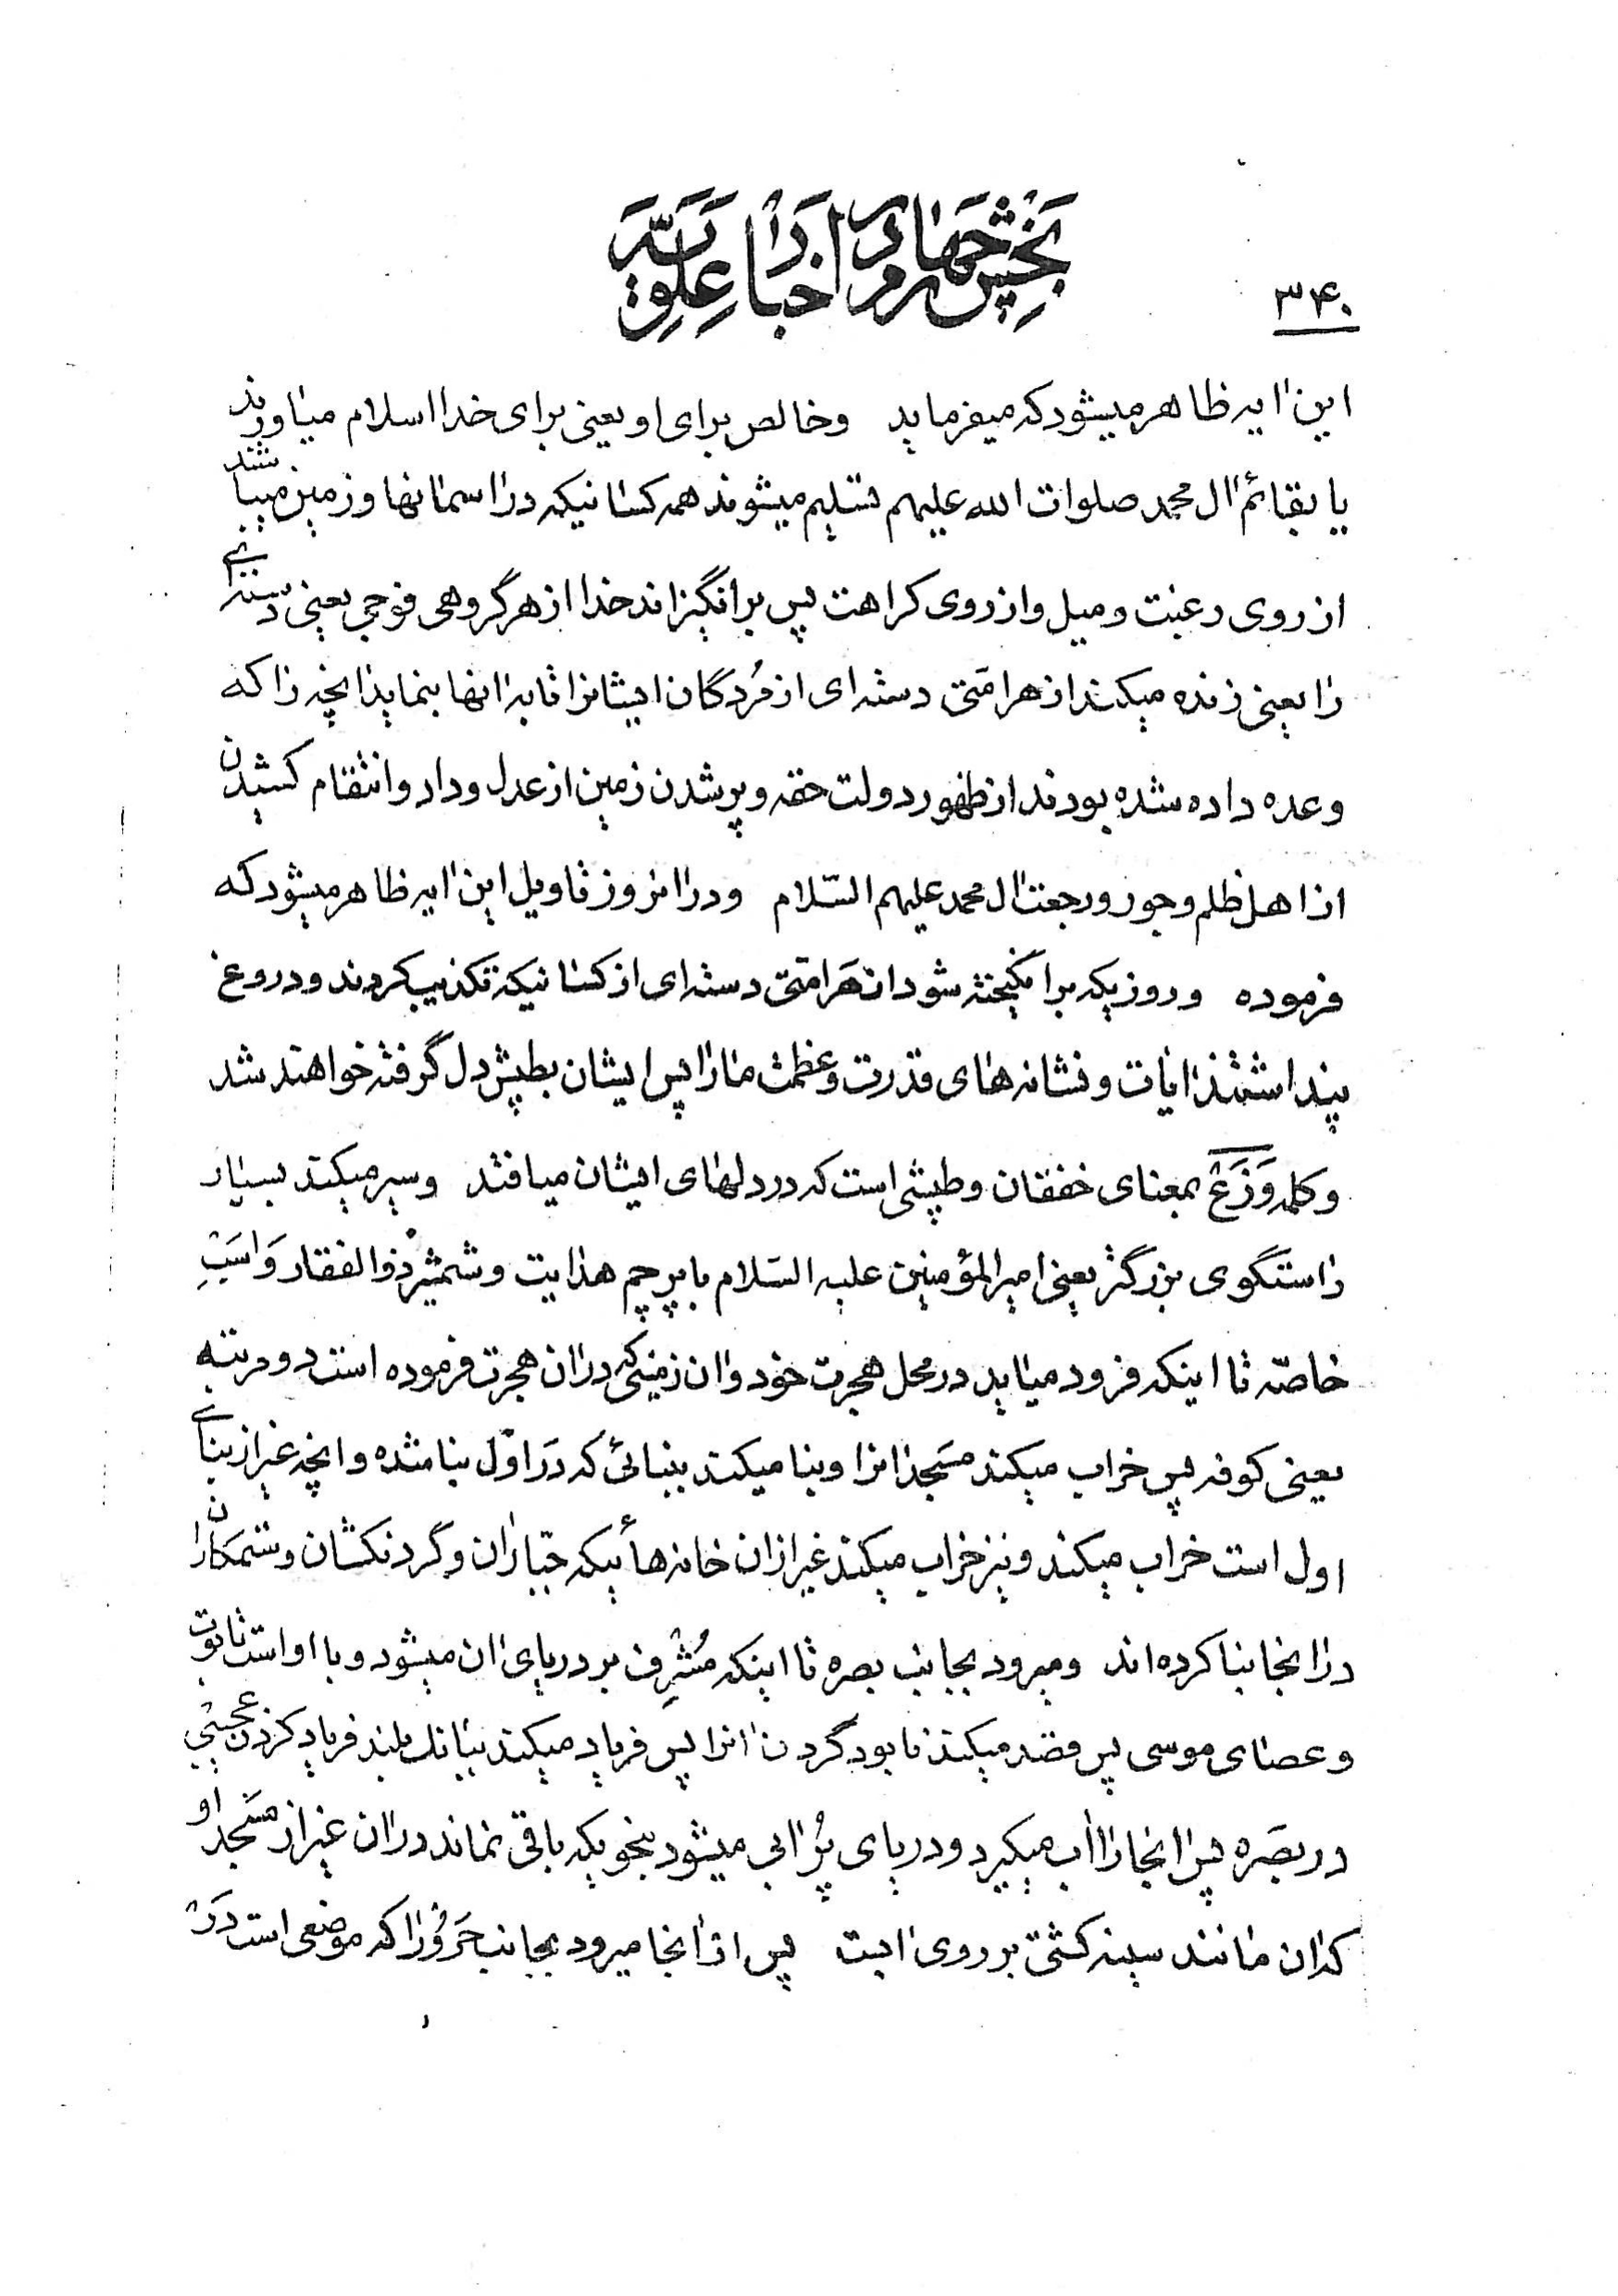 بخش چهارم در اخبار علویه
۳۴۰
این آیه ظاهر میشود که میفرماید وخالص برای او یعنی برای خدا اسلام میآورند
یا بقائم آل محمد صلوات الله علیهم تسلیم میشوند همه کسانیکه در آسمانها و زمین میباشند
از روی رغبت و میل و از روی کراهت پس برانگیزاند خدا از هر گروهی فوجی یعنی دسته‌ای
را یعنی زنده میکند از هر امتی دسته‌ای از مُردگان ایشانرا تا به آنها بنماید آنچه را که
وعده داده شده بودند از ظهور دولت حقه و پر شدن زمین از عدل و داد و انتقام کشیدن
از اهل ظلم و جور و رجعت آل محمد علیهم السّلام ودر آنروز تأویل این آیه ظاهر میشود که
فرموده و روزیکه برانگیخته شود از هَر امتی دسته‌ای از کسانیکه تکذیب کردند و دروغ
پنداشتند آیات و نشانه‌های قدرت وعظمت ما را پس ایشان بطپش دل گرفته خواهند شد
وکلمه وَزَعْ بمعنای خفقان وطپشی است که در دلهای ایشان میافتد وسیر میکند بسیار
راستگوی بزرگتر یعنی امیرالمؤمنین علیه السّلام با پرچم هدایت و شمشیر ذوالفقار وَاسَبِ
خاصّه تا اینکه فرود میاید در محل هجرت خود و آن زمینی که در آن هجرت فرموده است دو مرتبه
یعنی کوفه پس خراب میکند مسَجد آنرا و بنا میکند ببنائی که دَر اوّل بنا شده و آنچه غیر از بنای
اول است خراب میکند و نیز خراب میکند غیر از آن خانه‌هائیکه جبّاران و گردنکشان و ستمکاران
در آنجا بنا کرده‌اند ومیرود بجانب بصره تا اینکه مُشْرِف بر دریای آن میشود و با او است تابوت
و عصای موسی پس قصد میکند نابود کردن آنرا پس فریاد میکند ببانک بلند فریاد کردن عجیبی
در بصَره پس آنجا را آب میگیرد و دریای پُر آبی میشود بنحویکه باقی نماند در آن غیر از مسَجد او
که آن مانند سینه کشتی بر روی آبست پس از آنجا میرود بجانب حَرَوُرا که موضعی است دَر